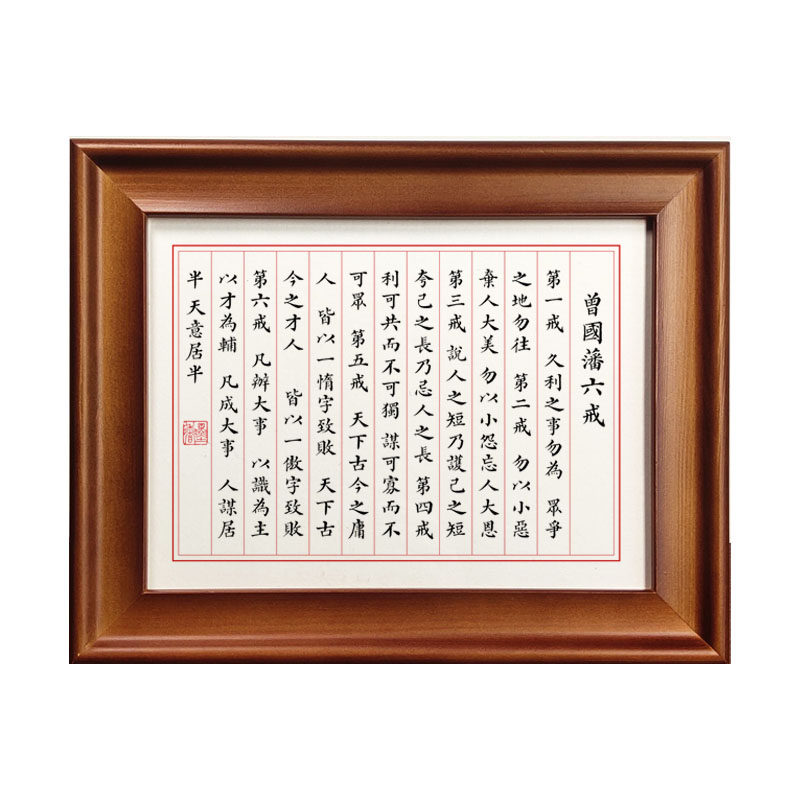 曾國藩六戒
第一戒 久利之事勿為 眾爭
之地勿往 第二戒 勿以小惡
棄人大美 勿以小怨忘人大恩
第三戒 說人之短乃護己之短
夸己之長乃忌人之長 第四戒
利可共而不可獨 謀可寡而不
可眾 第五戒 天下古今之庸
人 皆以一惰字致敗 天下古
今之才人 皆以一傲字致敗
第六戒 凡辦大事 以識為主
以才為輔 凡成大事 人謀居
半 天意居半